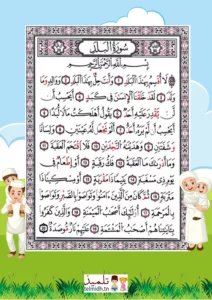 سورة البلد
بسم الله الرحمن الرحيم
لا أقسم بهذا البلد ١ وأنت حل بهذا البلد ٢ ووالد وما
ولد ٣ لقد خلقنا الإنسان في كبد ٤ أيحسب أن
لن يقدر عليه أحد ٥ يقول أهلكت مالا لبدا ٦
أيحسب أن لم يره أحد ٧ ألم نجعل له عينين ٨ ولسانا
وشفتين ٩ وهديناه النجدين ١٠ فلا اقتحم العقبة ١١
وما أدراك ما العقبة ١٢ فك رقبة ١٣ أو إطعام في
يوم ذي مسغبة ١٤ يتيما ذا مقربة ١٥ أو مسكينا ذا
متربة ١٦ ثم كان من الذين آمنوا وتواصوا بالصبر وتواصوا
بالمرحمة ١٧ أولئك أصحاب الميمنة ١٨ والذين كفروا
بآياتنا هم أصحاب المشأمة ١٩ عليهم نار مؤصدة ٢٠
تلميذ
telmidh.tn